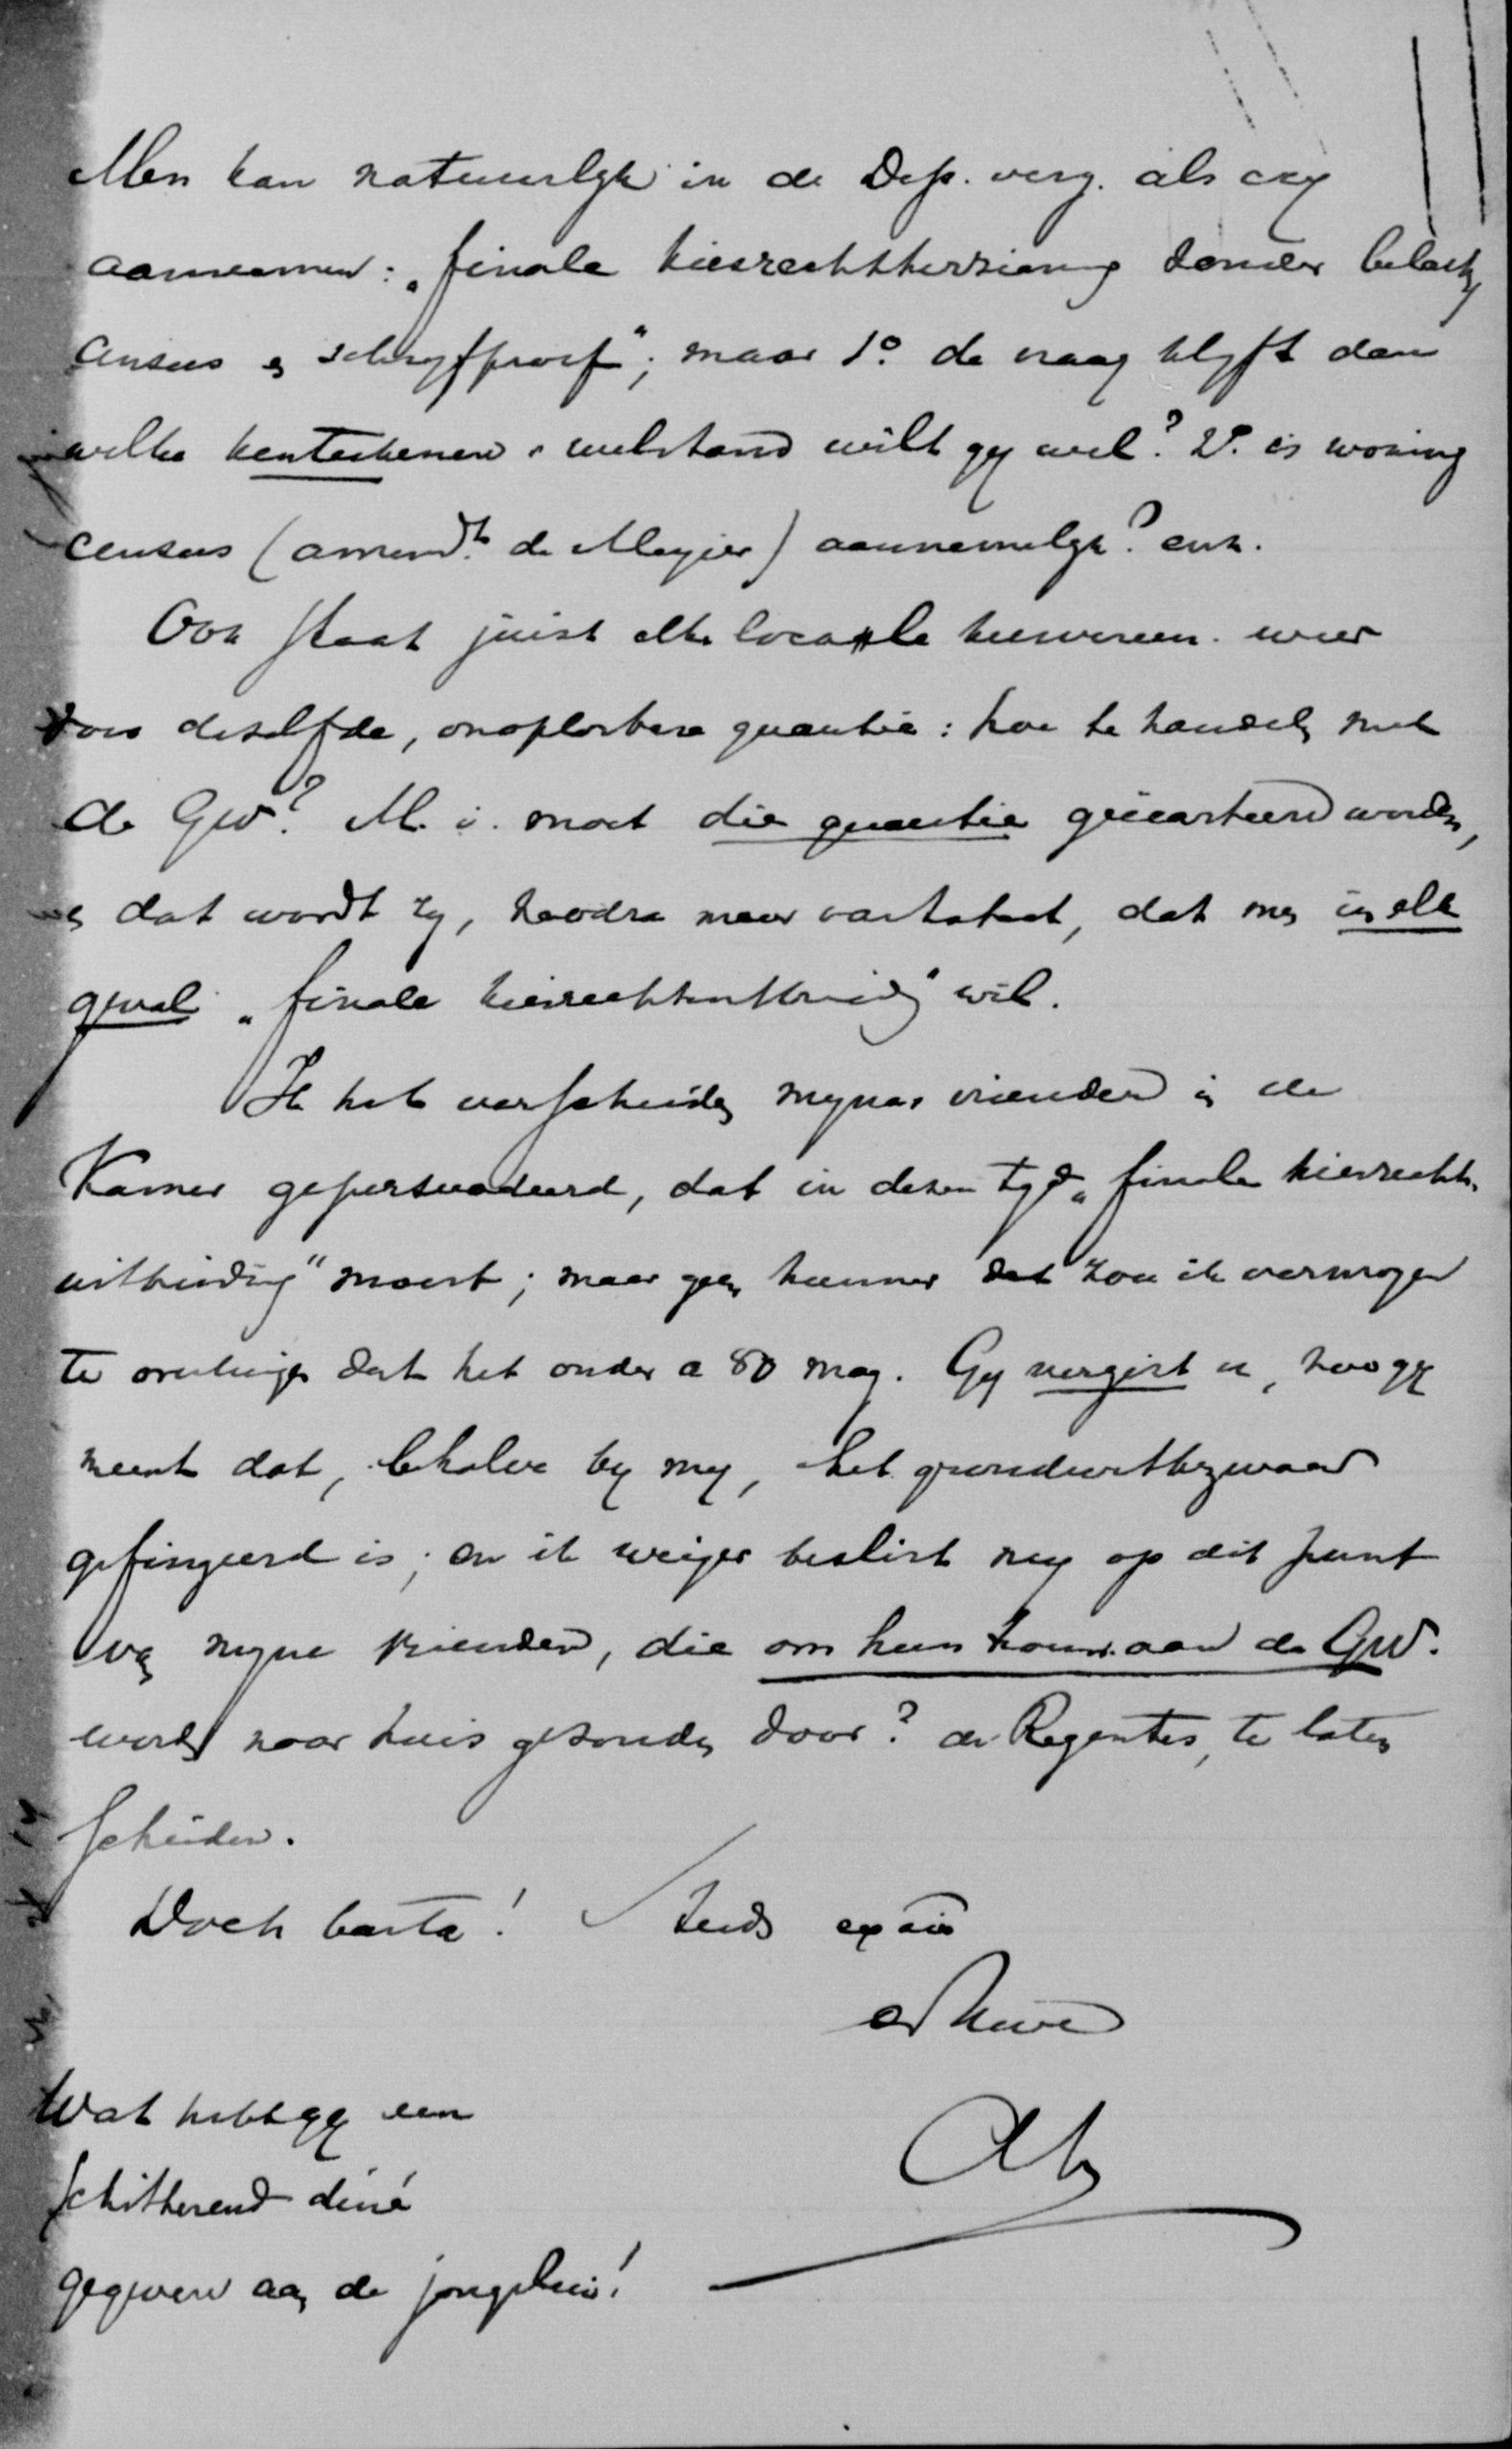 Men kan natuurlyk in de Dep. verg. als
aannemen: „finale kiesrechtherziening zonder belast.
census en schryfproef"; maar 1o. de vraag blyft dan
welke kenteekenen v welstand wilt gy wel? 2o. is woning
census (amendt. de Meyier) aannemelyk? enz.
Ook staat juist elke locale kiesvereen. weer
voor dezelfde, onoplosbare quaestie: hoe te handelen met
de GW? M. i. moet die quaestie geëcarteerd worden,
en dat wordt zy, zoodra maar vaststaat, dat men in elk
geval „finale kiesrechtuitbreidg" wil.
Ik heb verscheiden mijner vrienden in de
Kamer gepersuadeerd, dat in dezen tyd „finale kiesrechts-
uitbreiding" moest; maar geen hunner zou ik vermogen
te overtuigen dat het onder a 80 mag. Gy vergist u, zoo gy
meent dat, behalve by my, het grondwetbezwaar
gefingeerd is; en ik weiger beslist my op dit punt
van myne vrienden, die om hun trouw aan de GW.
worden naar huis gezonden door? de Regentes, te laten
scheiden.
Doch basta! Steeds ex animo
Wat hebt gy een
schitterend diné
gegeven aan de jongelui!